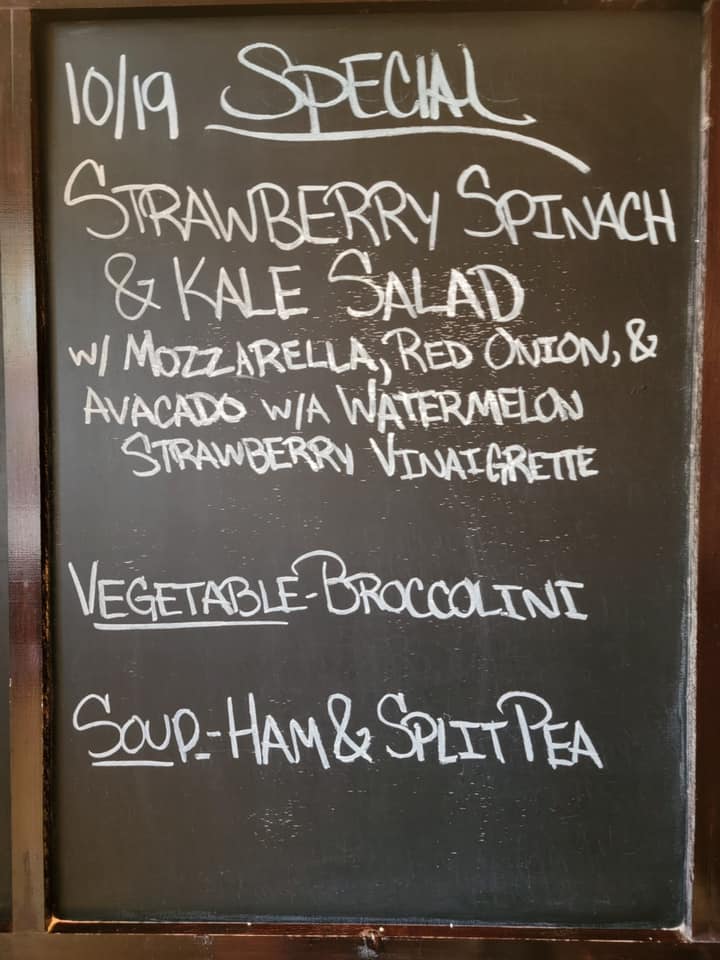 10/19 SPECIAL
STRAWBERRY SPINACH
& KALE SALAD
W/ MOZZARELLA, RED ONION, &
AVACADO W/A WATERMELON
STRAWBERRY VINAIGRETTE
VEGETABLE-BROCCOLINI
SOUP-HAM & SPLIT PEA